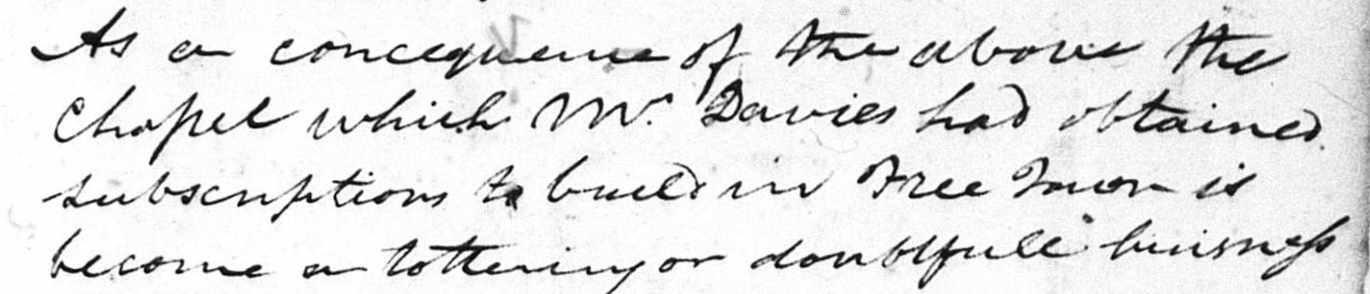 As a concequence of the above the
Chapel which Mr. Davies had obtained
subscriptions to build in Free Town is
become a tottering or doubtfull buisness